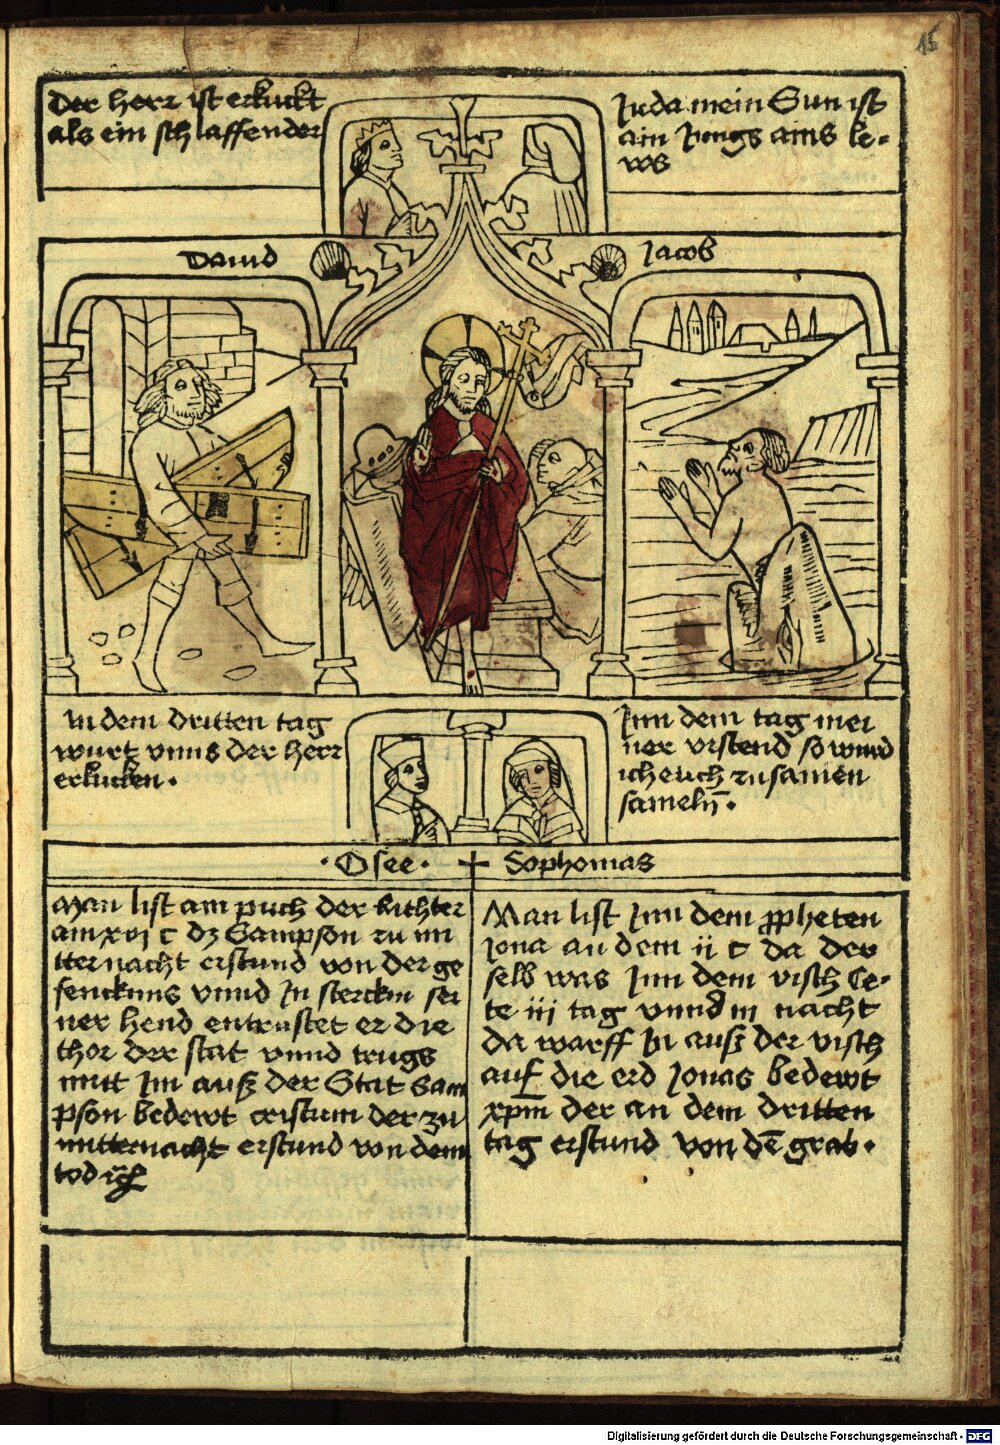 15
Der herr ist erkuckt
als ein schlaffender
Juda mein Sun ist
ain Jungs ains le-
ws
Dauid
Jacob
In dem dritten tag
wurt vnns der herr
erkucken.
Jnn dem tag mei
ner vrstend so wurd
ich euch zu samen
sameln̄.
Osee. + Sophonias
Man list am puch der Richter
am xvj c dz Sampson zu mi
tter nacht erstund von der ge
fencknus vnnd Jn sterckin sei
ner hend entrustet er die
thor der stat vnnd trugs
mitt Jm auß der Stat Sam
pson bedewt cristum der zu
mitternacht erstund von dem
tod
Man list Jnn dem propheten
Jona an dem ij c da der
selb was Jnn dem visch Ce-
te iij tag vnnd iij nacht
da warff Jn auß der visch
auf die erd Jonas bedewt
xpm̄ der an dem dritten
tag erstund von dē grab.
Digitalisierung gefördert durch die Deutsche Forschungsgemeinschaft - DFG